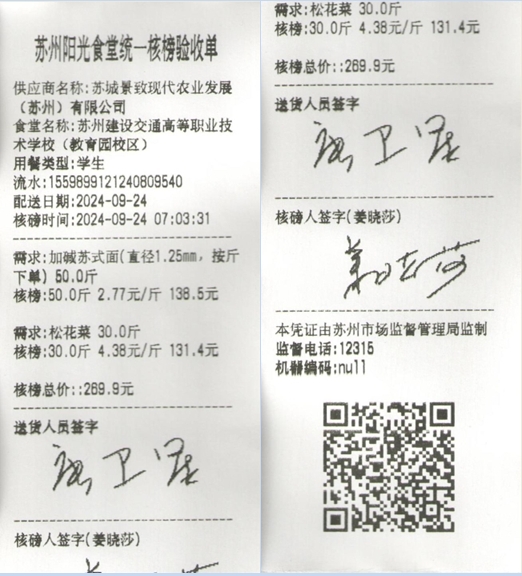 苏州阳光食堂统一核榜验收单
供应商名称:苏城景致现代农业发展
（苏州）有限公司
食堂名称:苏州建设交通高等职业技
术学校（教育园校区）
用餐类型:学生
流水:1559899121240809540
配送日期:2024-09-24
核磅时间:2024-09-24 07:03:31
需求:加碱苏式面(直径1.25mm，按斤
下单) 50.0斤
核榜:50.0斤 2.77元/斤 138.5元
需求:松花菜 30.0斤
核榜:30.0斤 4.38元/斤 131.4元
核榜总价::269.9元
送货人员签字
核磅人签字(姜晓莎)
需求:松花菜 30.0斤
核榜:30.0斤 4.38元/斤 131.4元
核榜总价::269.9元
送货人员签字
核磅人签字(姜晓莎)
本凭证由苏州市场监督管理局监制
监督电话:12315
机器编码:null